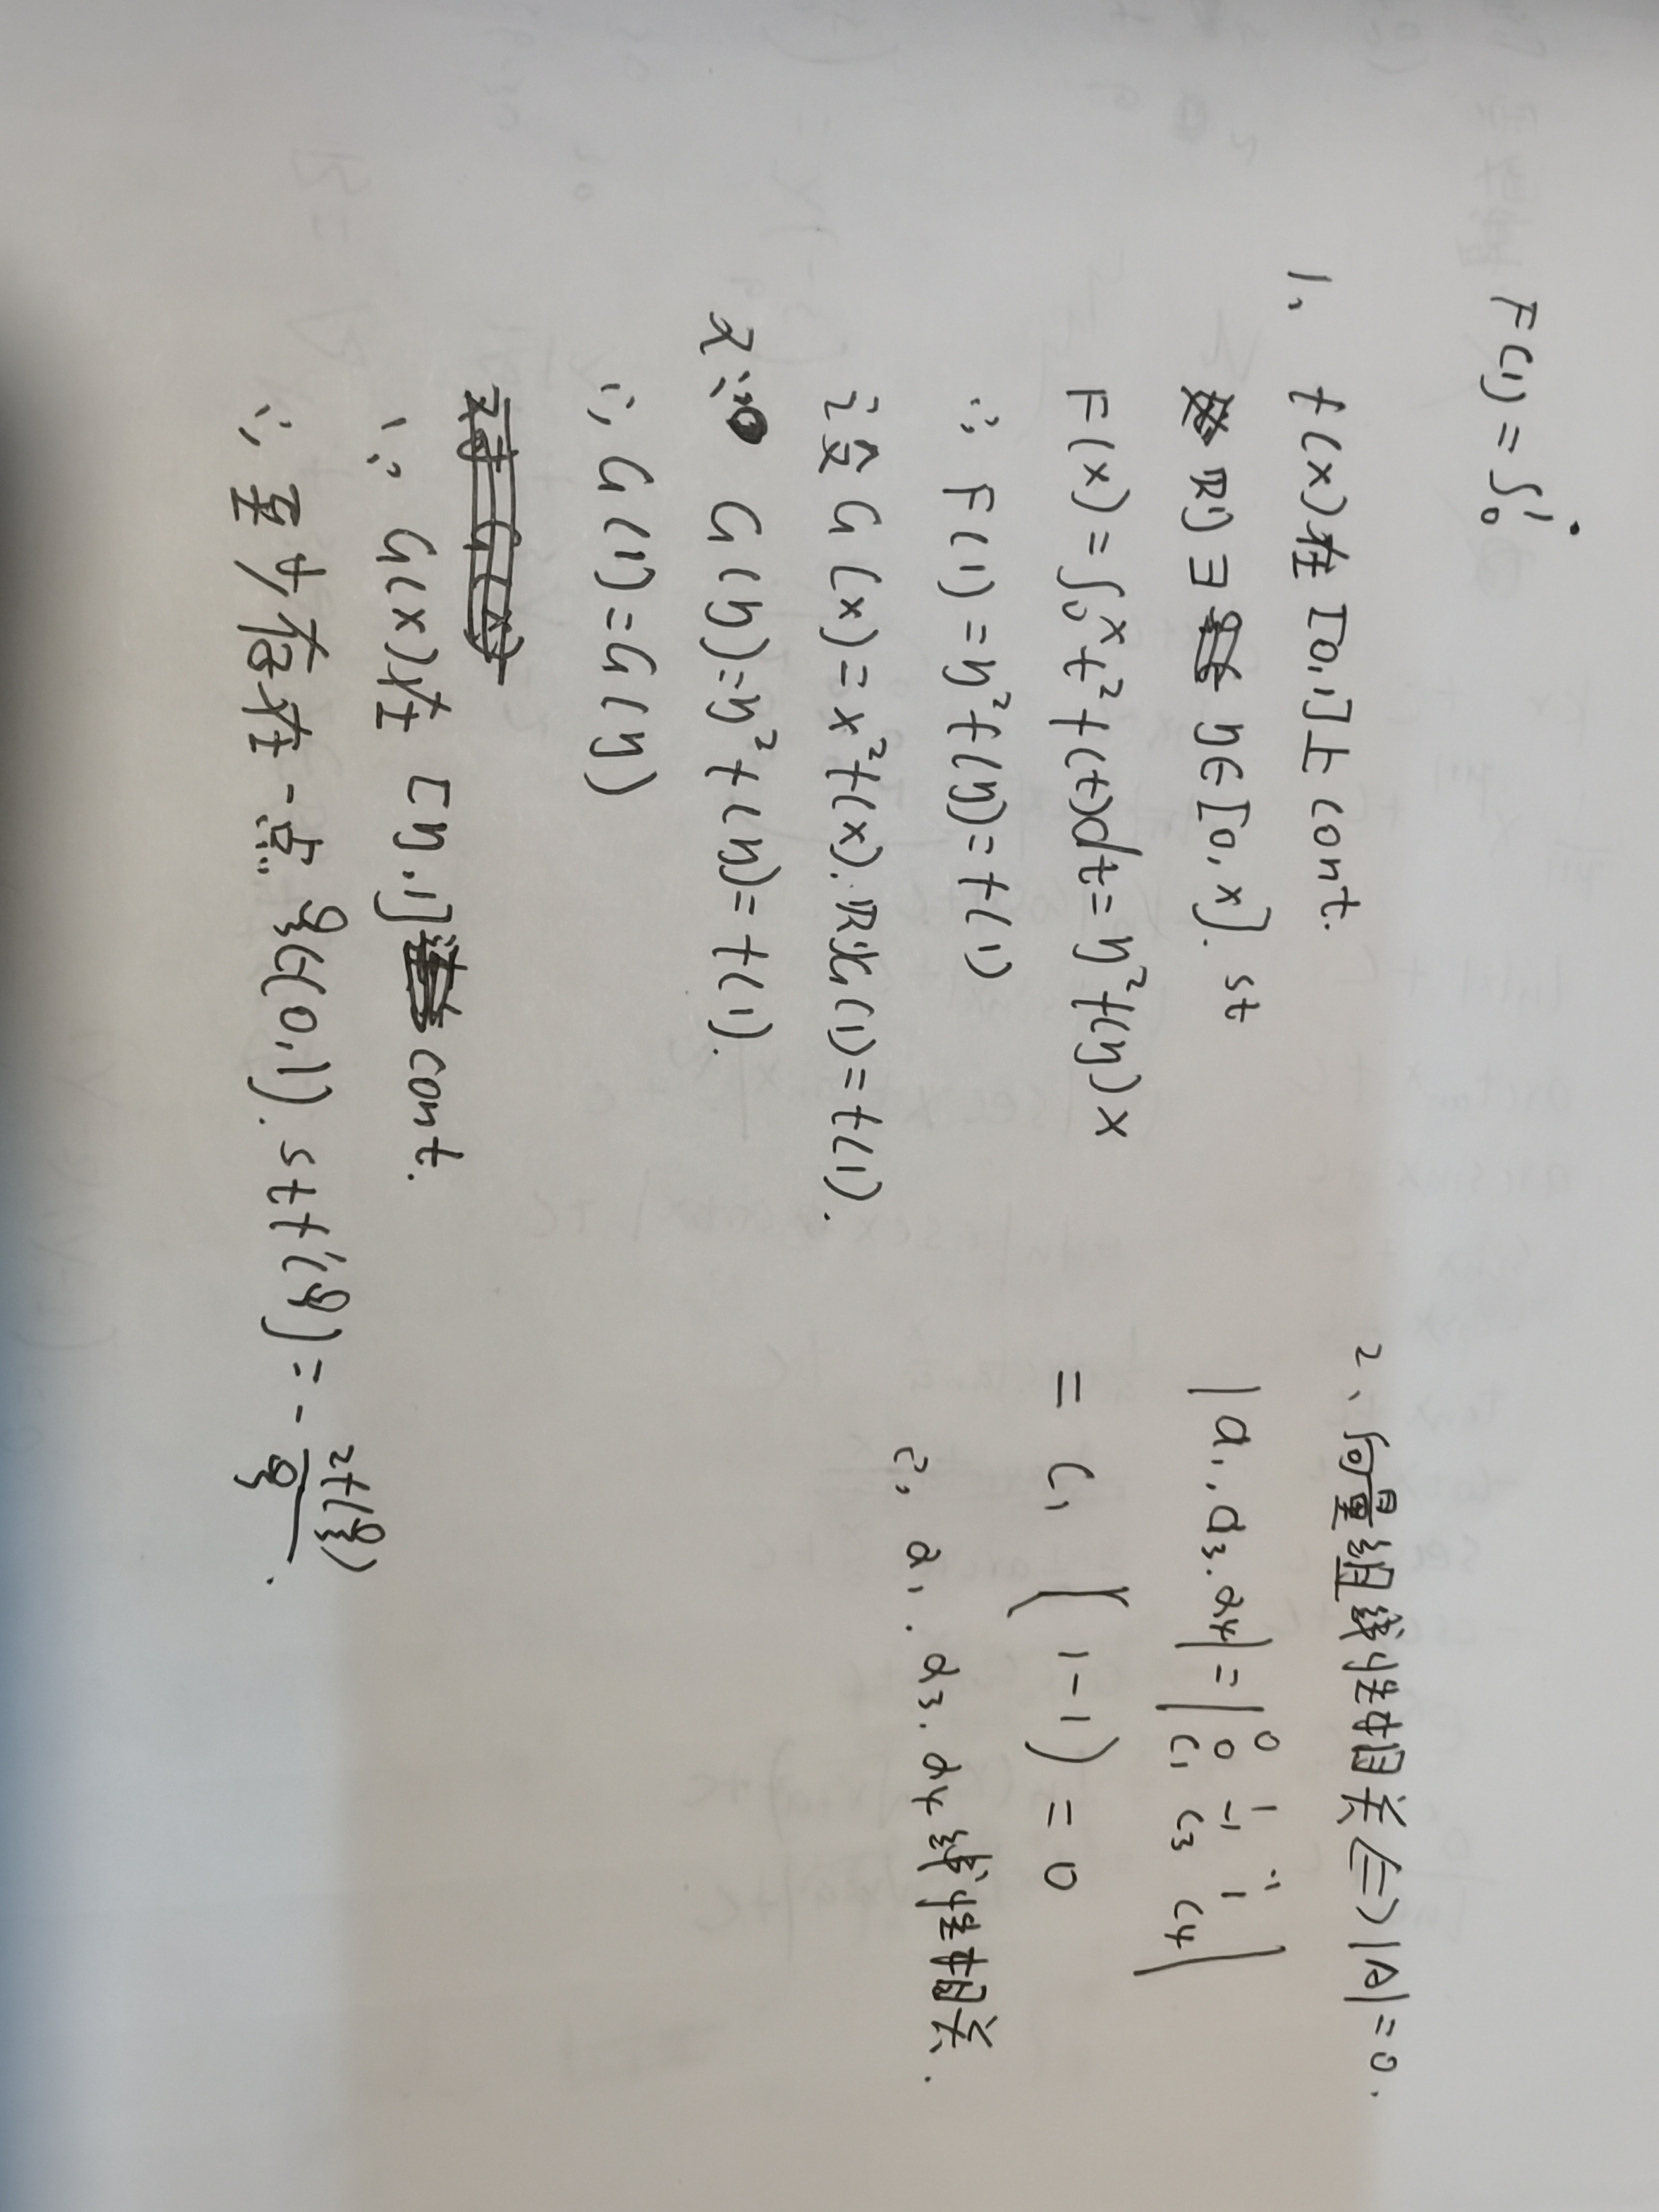 F(1) = ∫₀¹
1、 f(x)在[0,1]上 cont.
则 ∃ η∈[0,x]. st
F(x) = ∫₀ˣ t² f(t)dt = η² f(η) x
∴ F(1) = η² f(η) = f(1)
设 G(x) = x² f(x). 则G(1) = f(1).
又∵ G(η) = η² f(η) = f(1).
∴ G(1) = G(η)
∵ G(x)在 [η,1] cont.
∴ 至少存在一点 ξ∈(0,1). st f'(ξ) = - 2f(ξ)/ξ .
2、向量组线性相关 <=> |A| = 0.
|α₁, α₃. α₄| = | 0 1 -1
0 -1 1
C₁ C₃ C₄ |
= C₁ (1-1) = 0
∴ α₁. α₃. α₄ 线性相关.